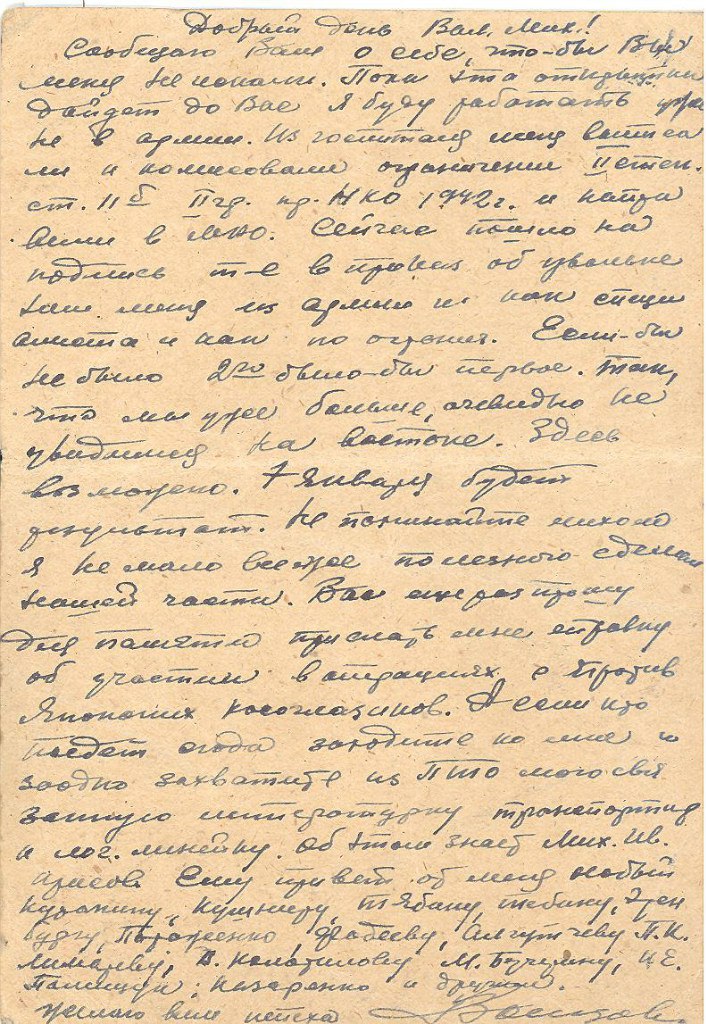 Добрый день Вал. Мих.!
Сообщаю Вам о себе, что-бы Вы
меня не искали. Пока эта открытка
дайдет до Вас я буду работать уже
не в армии. Из госпиталя меня выписа
ли и комисовали ограничении II степ.
ст. 11б II гр. пр. НКО 1942 г. и напра
вили в МВО. Сейчас пошло на
подпись т-е в приказ об увольне
нии меня из армии и как специ
алиста и как по огранич. Если-бы
не было 2го было-бы первое. Так,
что мы уже больше, очевидно не
увидимся на востоке. Здесь
возможно. 7 января будет
результат. Не поминайте лихом
я не мало все же полезного сделал
нашей части. Вас еще раз прошу
для памяти прислать мне справку
об участии в операциях против
Японских косоглазиков. А если кто
поедет сюда заходите ко мне и
заодно захватите из ПТО мою свя
занную литературку транспортир
и лог. линейку. Об этом знает Мих. Ив.
Ему привет от меня новый
Кушнеру,
Фадееву, П. К.
М.
и другим.
желаю вам успеха